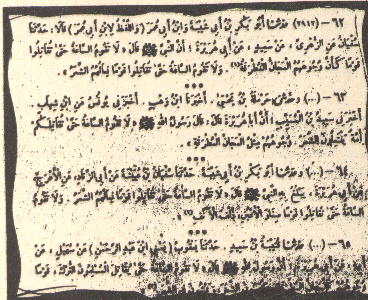 ٦٢ - (٢٩١٢) وحدثنا أبو بكر بن أبي شيبة وابن أبي عمر (واللفظ لابن أبي عمر) قالا: حدثنا
سفيان عن الزهري، عن سعيد، عن أبي هريرة؛ أن النبي ﷺ قال «لا تقوم الساعة حتى تقاتلوا
قوما كأن وجوههم المجان المطرقة. ولا تقوم الساعة حتى تقاتلوا قوما نعالهم الشعر».
***
٦٣ - (...) وحدثني حرملة بن يحيى. أخبرنا ابن وهب. أخبرني يونس عن ابن شهاب.
أخبرني سعيد بن المسيب؛ أن أبا هريرة قال: قال رسول الله ﷺ «لا تقوم الساعة حتى تقاتلكم
أمة ينتعلون الشعر. وجوههم مثل المجان المطرقة».
***
٦٤ - (...) وحدثنا أبو بكر بن أبي شيبة. حدثنا سفيان بن عيينة عن أبي الزناد، عن الأعرج،
عن أبي هريرة. يبلغ به النبي ﷺ قال «لا تقوم الساعة حتى تقاتلوا قوما نعالهم الشعر. ولا تقوم
الساعة حتى تقاتلوا قوما صغار الأعين، ذلف الآنف».
***
٦٥ - (...) حدثنا قتيبة بن سعيد. حدثنا يعقوب (يعني ابن عبد الرحمن) عن سهيل، عن
قال «لا تقوم الساعة حتى يقاتل المسلمون الترك. قوما